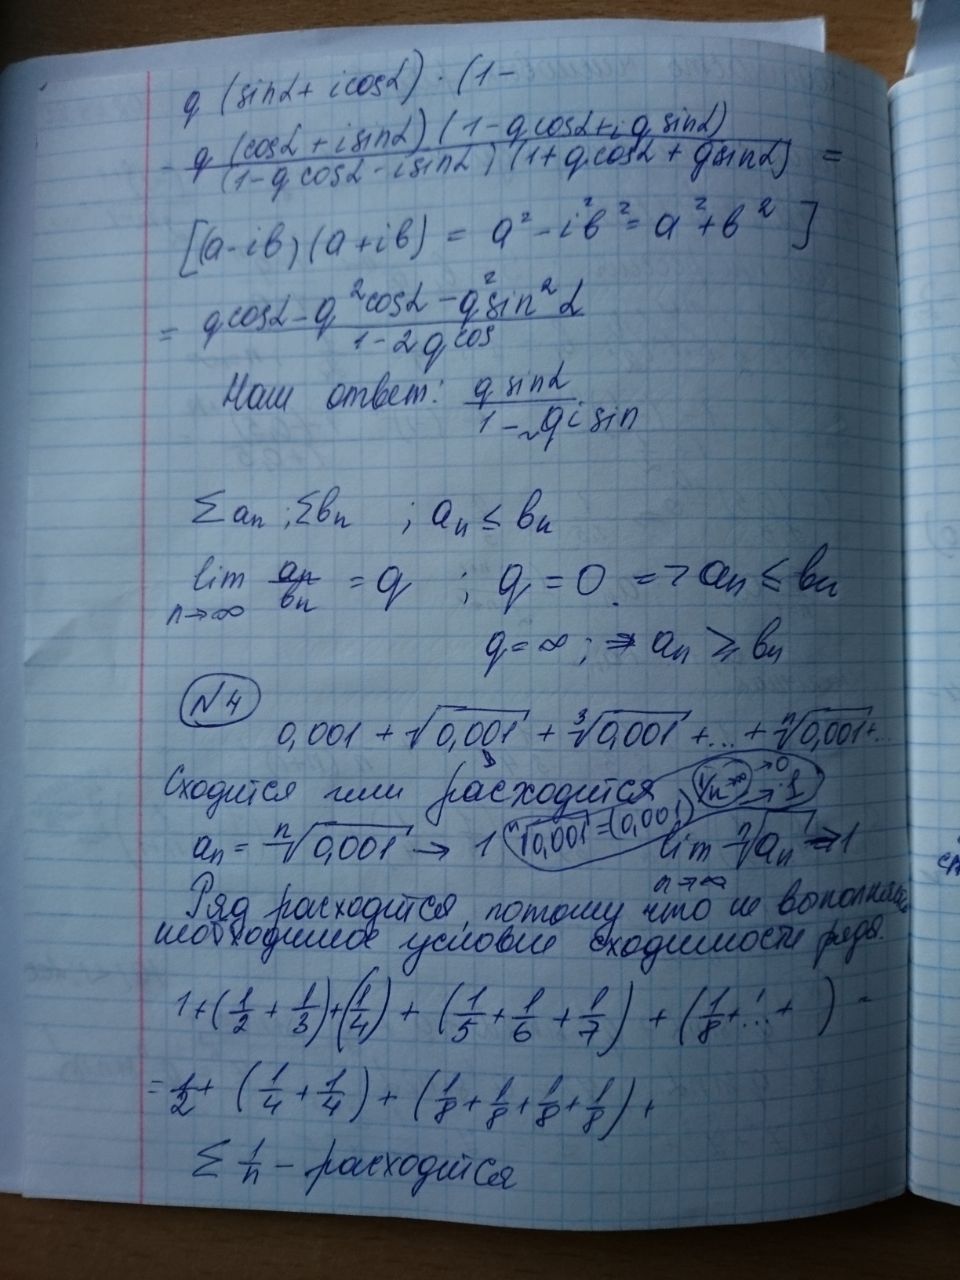 q (sinα + i cosα) · (1 -
- q (cosα + i sinα) (1 - q cosα + i q sinα) / (1 - q cosα - i sinα) (1 + q cosα + q sinα) =
[(a - iв) (a + iв) = a² - i²в² = a² + в²]
= q cosα - q² cosα - q² sin²α / 1 - 2q cos
Наш ответ: q sinα / 1 - 2 q i sin
Σ aₙ ; Σ вₙ ; aₙ ≤ вₙ
lim n→∞ aₙ/вₙ = q ; q = 0 => aₙ ≤ вₙ
q = ∞ ; => aₙ ≥ вₙ
N4
0,001 + √0,001 + ³√0,001 + ... + ⁿ√0,001 + ...
Сходится или расходится 1/n n→∞ → 0 → 1
aₙ = ⁿ√0,001 → 1 ⁿ√0,001 = (0,001) lim n→∞ ⁿ√aₙ → 1
Ряд расходится, потому что не выполняется
необходимое условие сходимости ряда.
1 + (1/2 + 1/3) + (1/4) + (1/5 + 1/6 + 1/7) + (1/8 + ... + ) -
= 1/2 + (1/4 + 1/4) + (1/8 + 1/8 + 1/8 + 1/8) +
Σ 1/n - расходится